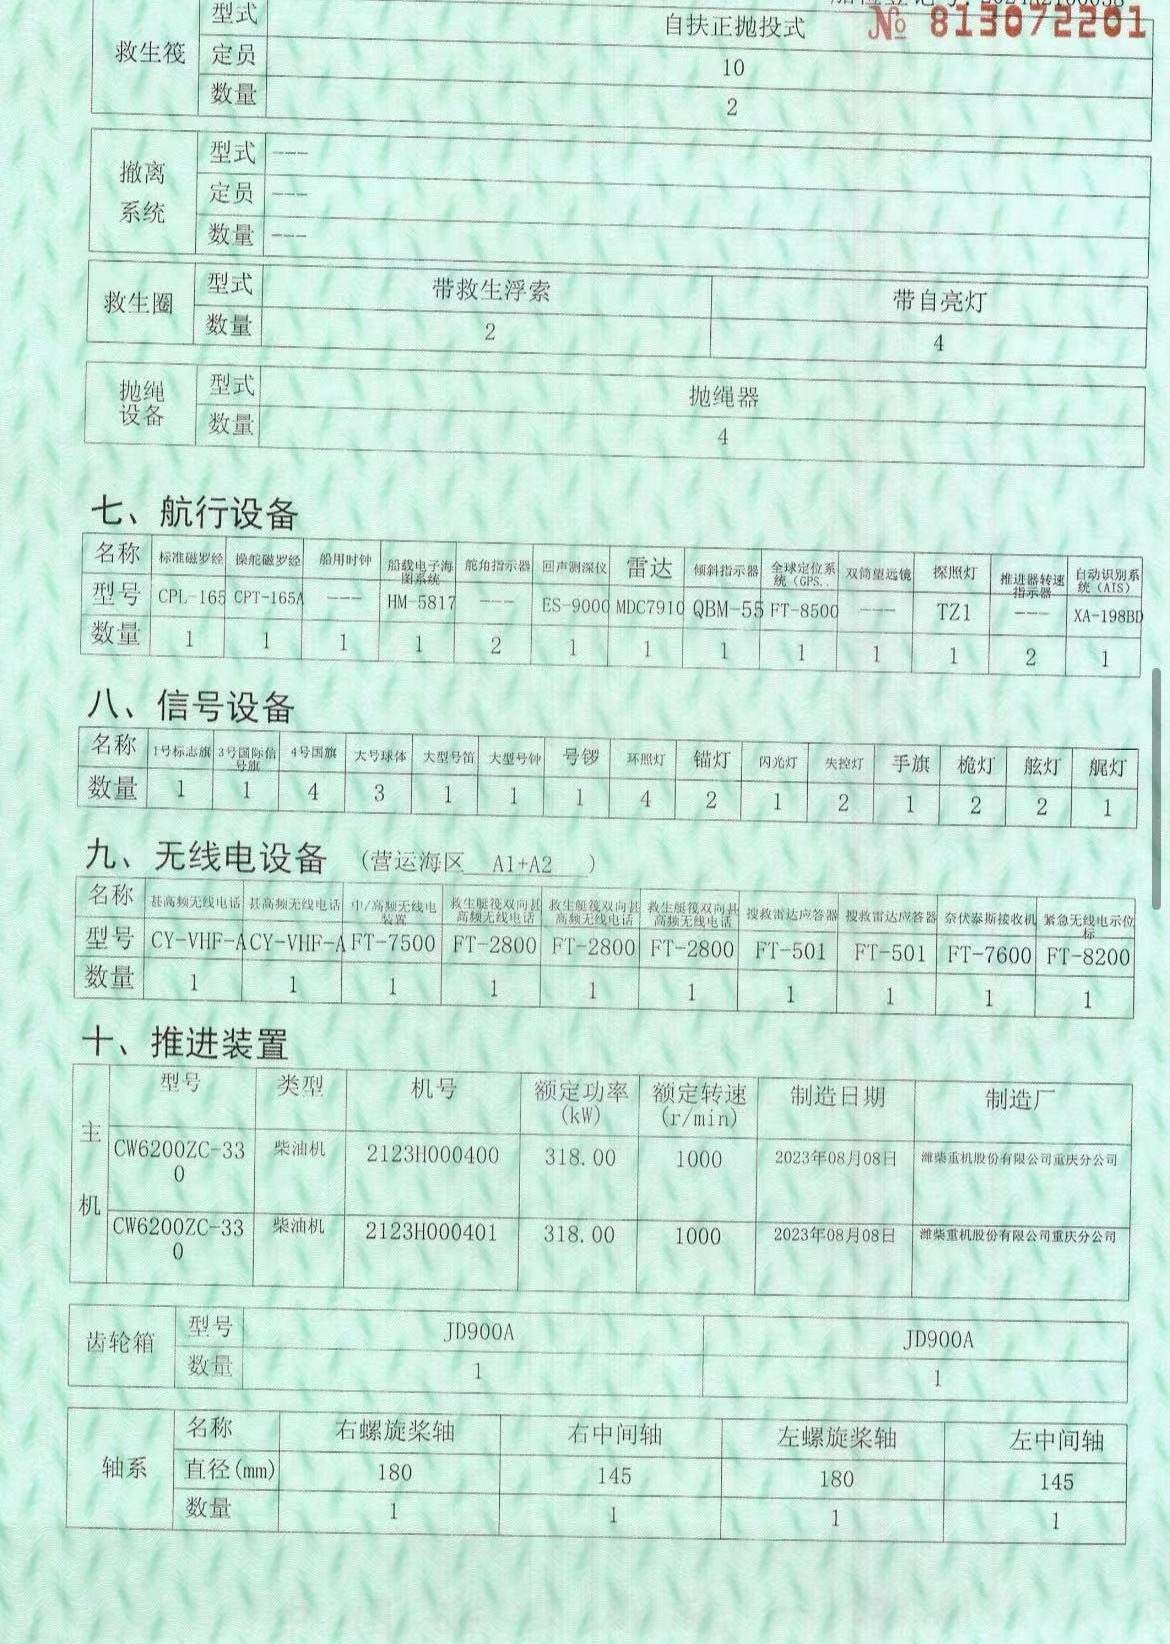 № 813072201
救生筏 型式 自扶正抛投式
定员 10
数量 2
撤离系统 型式 ---
定员 ---
数量 ---
救生圈 型式 带救生浮索 带自亮灯
数量 2 4
抛绳设备 型式 抛绳器
数量 4
七、航行设备
名称 标准磁罗经 操舵磁罗经 船用时钟 船载电子海图系统 舵角指示器 回声测深仪 雷达 倾斜指示器 全球定位系统（GPS.. 双筒望远镜 探照灯 推进器转速指示器 自动识别系统（AIS）
型号 CPL-165 CPT-165A --- HM-5817 --- ES-9000 MDC7910 QBM-55 FT-8500 --- TZ1 --- XA-198BD
数量 1 1 1 1 2 1 1 1 1 1 1 2 1
八、信号设备
名称 1号标志旗 3号国际信号旗 4号国旗 大号球体 大型号笛 大型号钟 号锣 环照灯 锚灯 闪光灯 失控灯 手旗 桅灯 舷灯 艉灯
数量 1 1 4 3 1 1 1 4 2 1 2 1 2 2 1
九、无线电设备 （营运海区 A1+A2 ）
名称 甚高频无线电话 甚高频无线电话 中/高频无线电装置 救生艇筏双向甚高频无线电话 救生艇筏双向甚高频无线电话 救生艇筏双向甚高频无线电话 搜救雷达应答器 搜救雷达应答器 奈伏泰斯接收机 紧急无线电示位标
型号 CY-VHF-A CY-VHF-A FT-7500 FT-2800 FT-2800 FT-2800 FT-501 FT-501 FT-7600 FT-8200
数量 1 1 1 1 1 1 1 1 1 1
十、推进装置
主机 型号 类型 机号 额定功率(kW) 额定转速(r/min) 制造日期 制造厂
CW6200ZC-330 柴油机 2123H000400 318.00 1000 2023年08月08日 潍柴重机股份有限公司重庆分公司
CW6200ZC-330 柴油机 2123H000401 318.00 1000 2023年08月08日 潍柴重机股份有限公司重庆分公司
齿轮箱 型号 JD900A JD900A
数量 1 1
轴系 名称 右螺旋桨轴 右中间轴 左螺旋桨轴 左中间轴
直径(mm) 180 145 180 145
数量 1 1 1 1